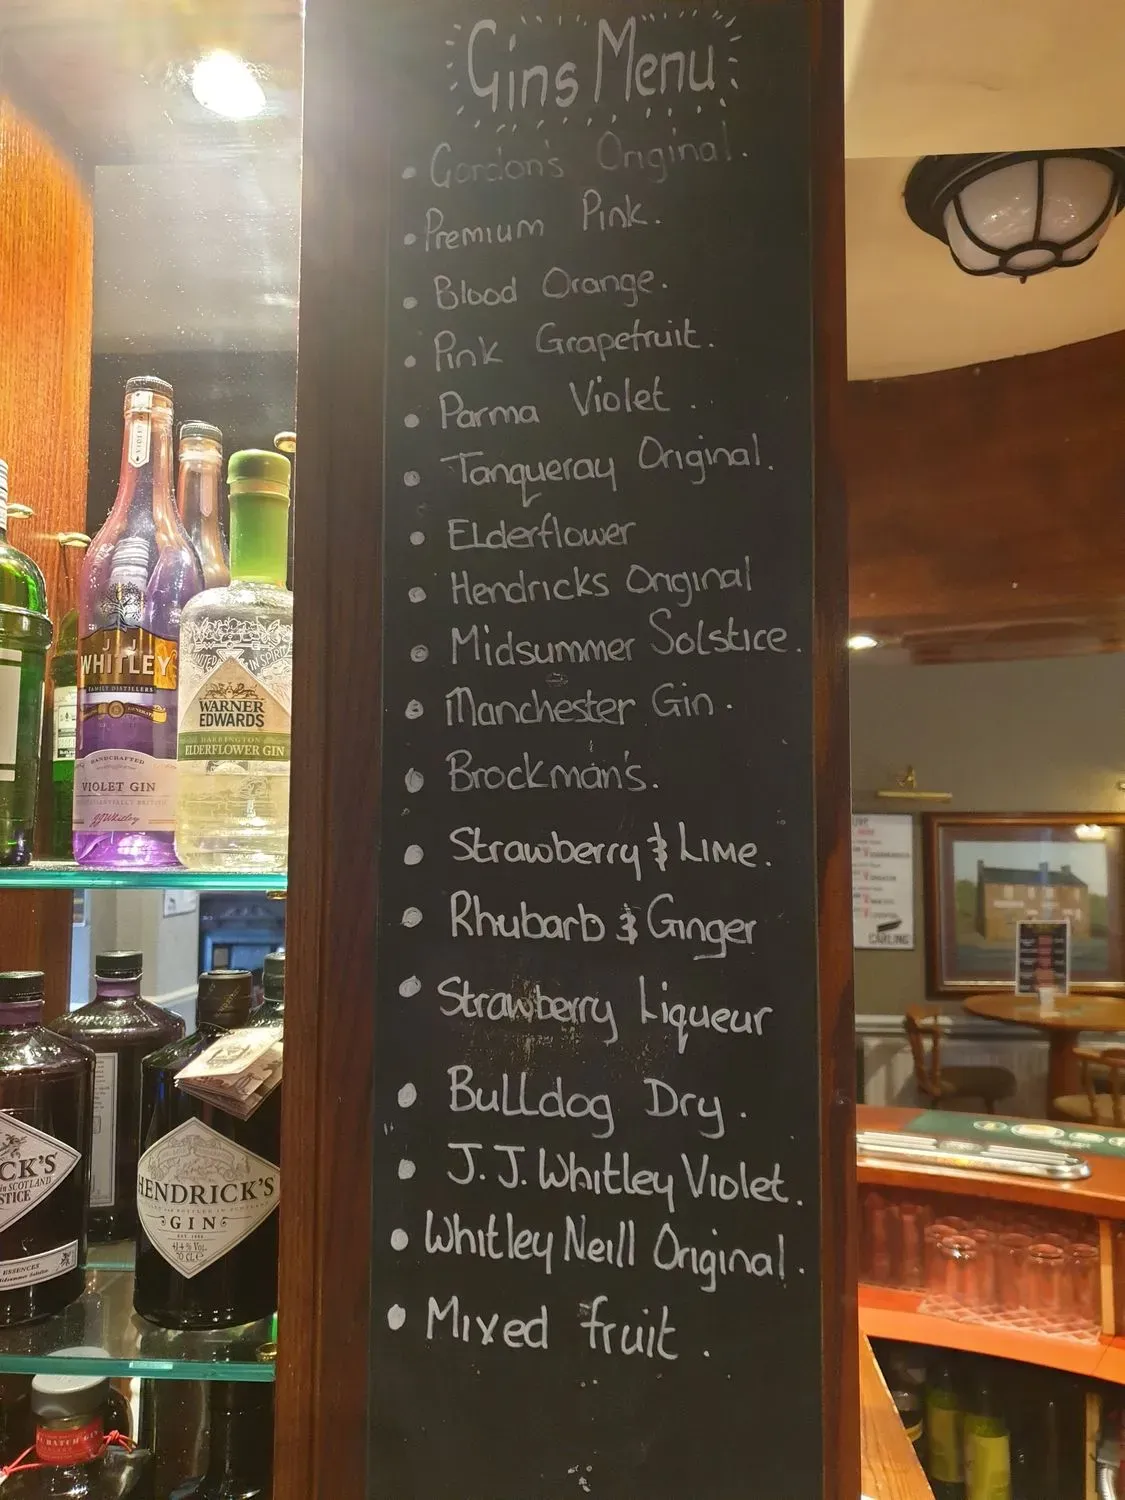 Gins Menu
• Gordon's Original.
• Premium Pink.
• Blood Orange.
• Pink Grapefruit.
• Parma Violet.
• Tanqueray Original.
• Elderflower
• Hendricks Original
• Midsummer Solstice.
• Manchester Gin.
• Brockman's.
• Strawberry & Lime.
• Rhubarb & Ginger
• Strawberry Liqueur
• Bulldog Dry.
• J.J. Whitley Violet.
• Whitley Neill Original.
• Mixed fruit.
J.J
WHITLEY
FAMILY DISTILLERS
HANDCRAFTED
VIOLET GIN
ESSENTIALLY BRITISH
JJ Whitley
WARNER
EDWARDS
HARRINGTON
ELDERFLOWER GIN
CK'S
in SCOTLAND
STICE
ESSENCES
Midsummer Solstice
HENDRICK'S
GIN
CARLING